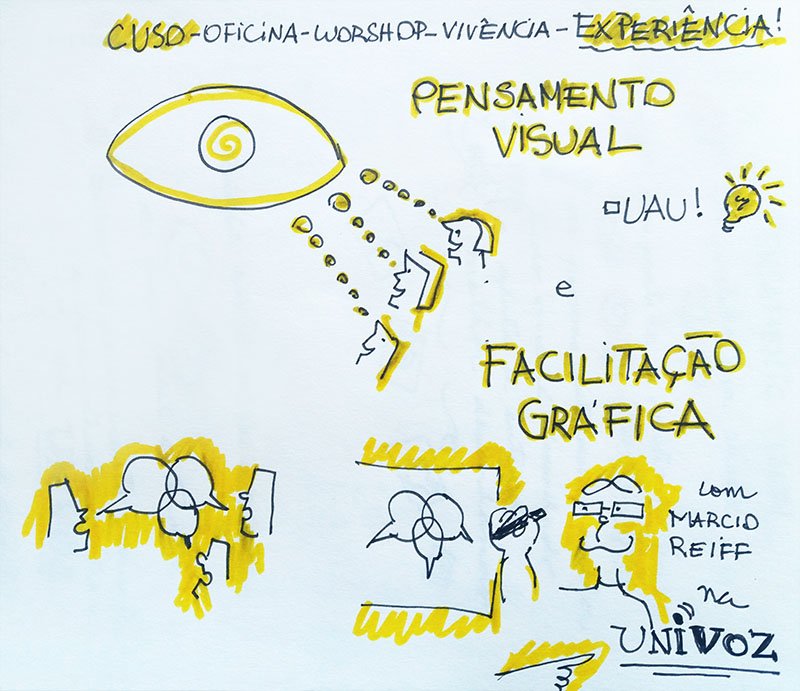 CUSO-OFICINA-WORSHOP-VIVÊNCIA-EXPERIÊNCIA!
PENSAMENTO
VISUAL
UAU!
e
FACILITAÇÃO
GRÁFICA
com
MARCIO
REIFF
na
UNIVOZ